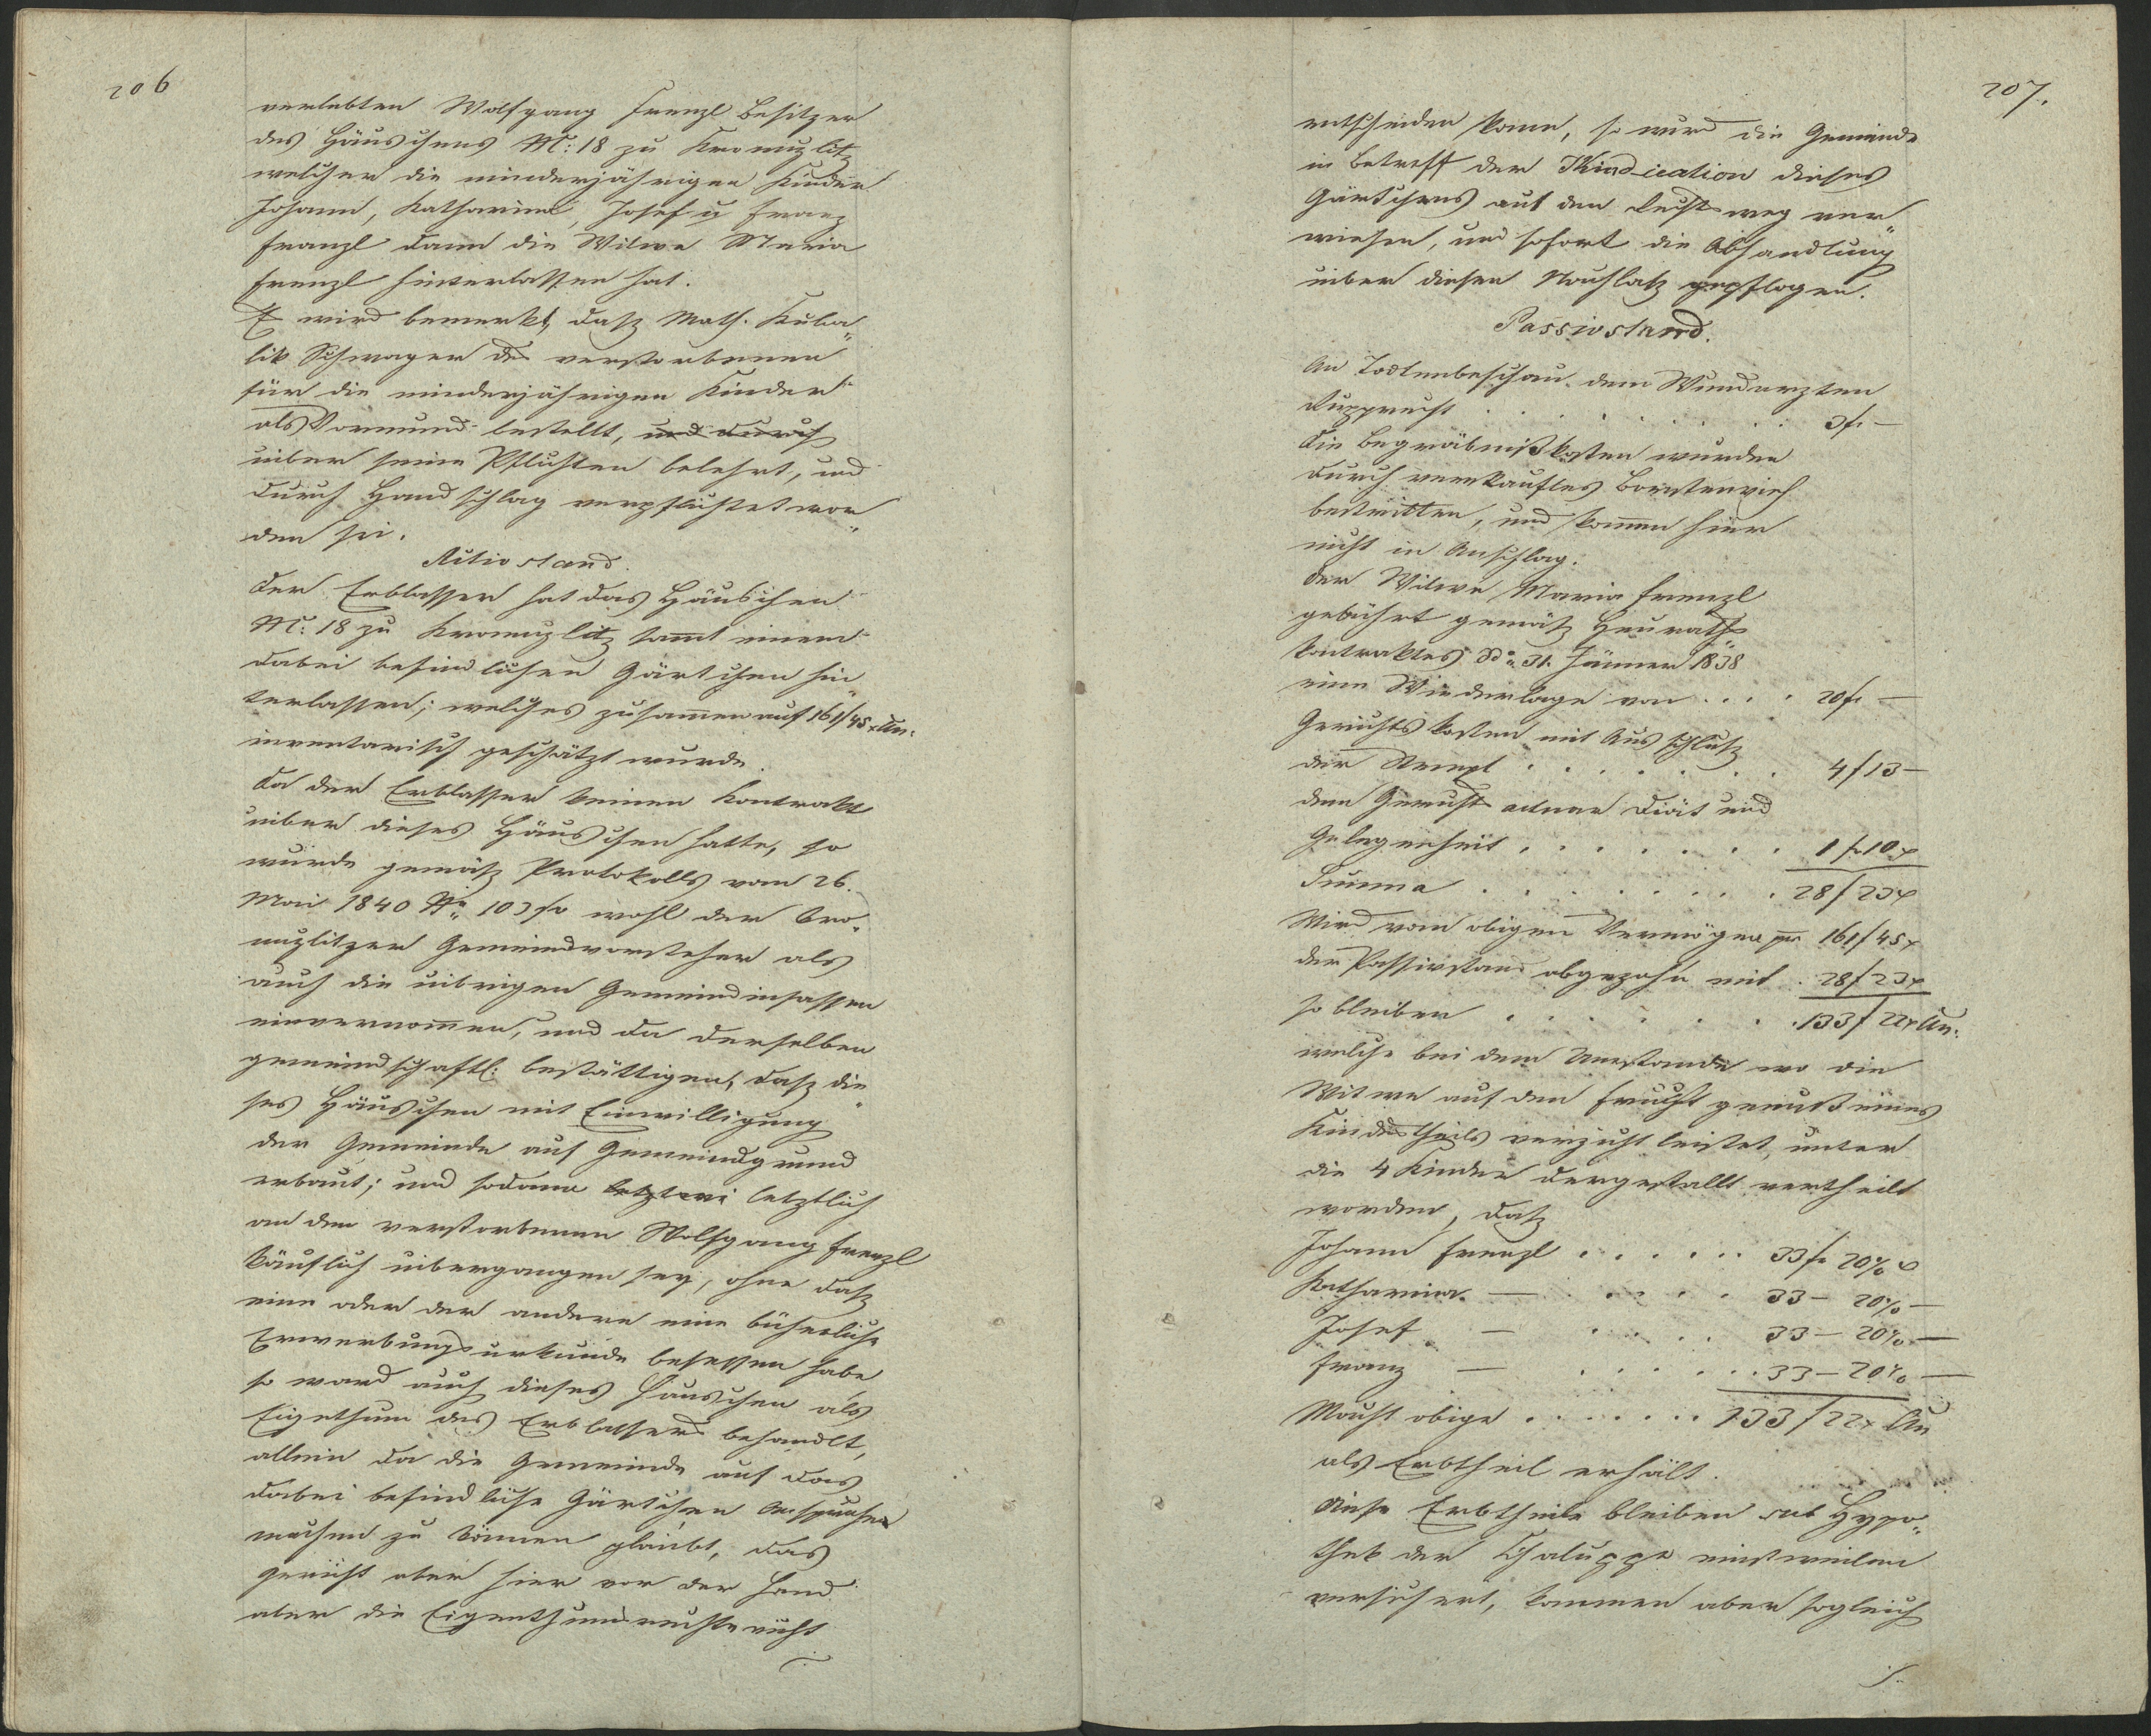 206
verlebten Wolfgang Frenzl Besitzer
des Häuschens N: 18 zu
welcher die minderjährigen Kinder
Johann, Katharina, Josef u Franz
Franzl dann die Witwe Maria
Frenzl hinterlassen hat.
Es wird bemerkt, daß Math. Kuba„
lik Schwager des verstorbenen
für die minderjährigen Kinder
als Vormund bestellt, und durch
uiber seine Pflichten belehrt, und
durch Handschlag verpflichtet wor„
den sei.
Activstand.
Der Erblasser hat das Häuschen
N: 18 zu samt einem
dabei befindlichen Gärtchen hin„
terlassen; welches zusamen auf 161f 45x
inventarisch geschätzt wurde.
Da der Erblasser keinen Kontrakt
uiber dieses Häuschen hatte, so
wurde gemäß Protokolls vom 26.
Mai 1840 N: 103 so wohl der
Gemeindvorsteher als
auch die uibrigen Gemeindinsassen
einvernommen, und da derselben
gemeindschaftl: bestättigen, daß die„
ses Häuschen mit Einwilligung
der Gemeinde auf Gemeindgrund
erbaut; und sodann letztlich
an den verstorbenen Wolfgang Frenzl
käuflich uibergangen sey, ohne daß
eine oder der andere eine bücherliche
Erwerbungsurkunde besessen habe
so ward auch dieses Häuschen als
Eigethum des Erblassers behandlt,
allein da die Gemeinde auf das
dabei befindliche Gärtchen Ansprüche
machen zu können glaubt, das
Gericht aber hier vor der Hand
aber die Eigenthumsrechte nicht
207.
entscheiden kann, so wird die Gemeinde
in Betreff der Vindication dieses
Gärtchens auf den Rechtsweg ver„
wiesen, und sofort die Abhandlung
uiber diesen Nachlaß gepflogen.
Passivstand.
An Todtenbeschau dem Wundarzten
Rupprecht . . . . . . . 3f. —
Die Begräbnißkosten wurden
durch verkauftes Borstenvieh
bestritten, und komen hier
nicht in Anschlag.
Der Witwe Maria Frenzl
gebührt gemäß Heuraths„
kontraktes dd: 31. Jänner 1838
eine Wiederlage von . . . . 20f. —
Gerichtskosten mit Ausschluß
der Stempl . . . . . . . 4f 13 —
dem Gerichtsactuar Diät und
Gelegenheit . . . . . . . 1f 10x
Summa . . . . . . . . 28f 23x
Wird vom obigen Vermögen pr 161f 45x
der Passivstand abgezohn mit . 28f 23x
so bleiben . . . . . . . 133f 22x
welche bei dem Umstande wo die
Witwe auf den Fruchtgenuß eines
Kindestheils verzicht leistet, unter
die 4 Kinder dergestallt vertheilt
worden, daß
Johann Frenzl . . . . . . 33f. 20 2/4 x
Katharina — . . . . . 33 — 20 2/4 —
Josef — . . . . . 33 — 20 2/4 —
Franz — . . . . . . 33 — 20 2/4 —
Macht obige . . . . . . . 133f 22x
als Erbtheil erhält.
Diese Erbtheile bleiben sub Hypo„
thek der Chaluppe einstweilen
versichert, kommen aber sogleich